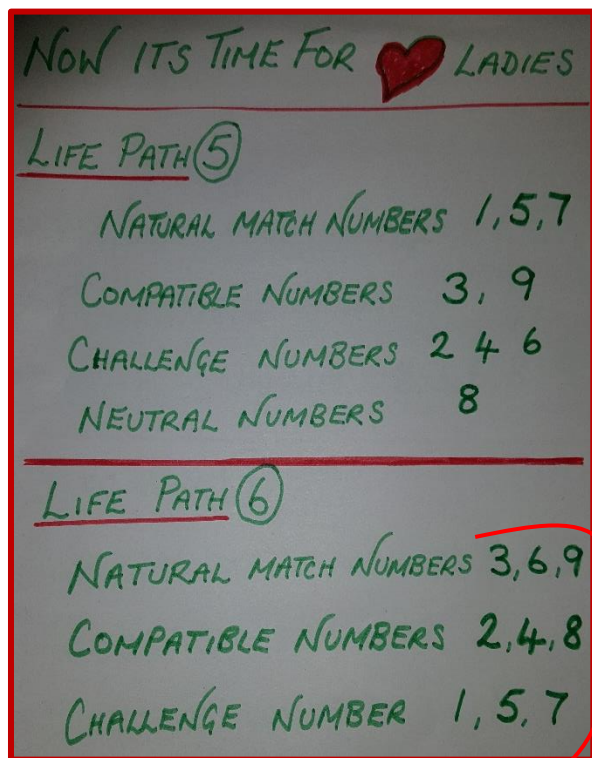 NOW ITS TIME FOR LADIES
LIFE PATH 5
NATURAL MATCH NUMBERS 1,5,7
COMPATIBLE NUMBERS 3, 9
CHALLENGE NUMBERS 2 4 6
NEUTRAL NUMBERS 8
LIFE PATH 6
NATURAL MATCH NUMBERS 3,6,9
COMPATIBLE NUMBERS 2,4,8
CHALLENGE NUMBER 1,5,7